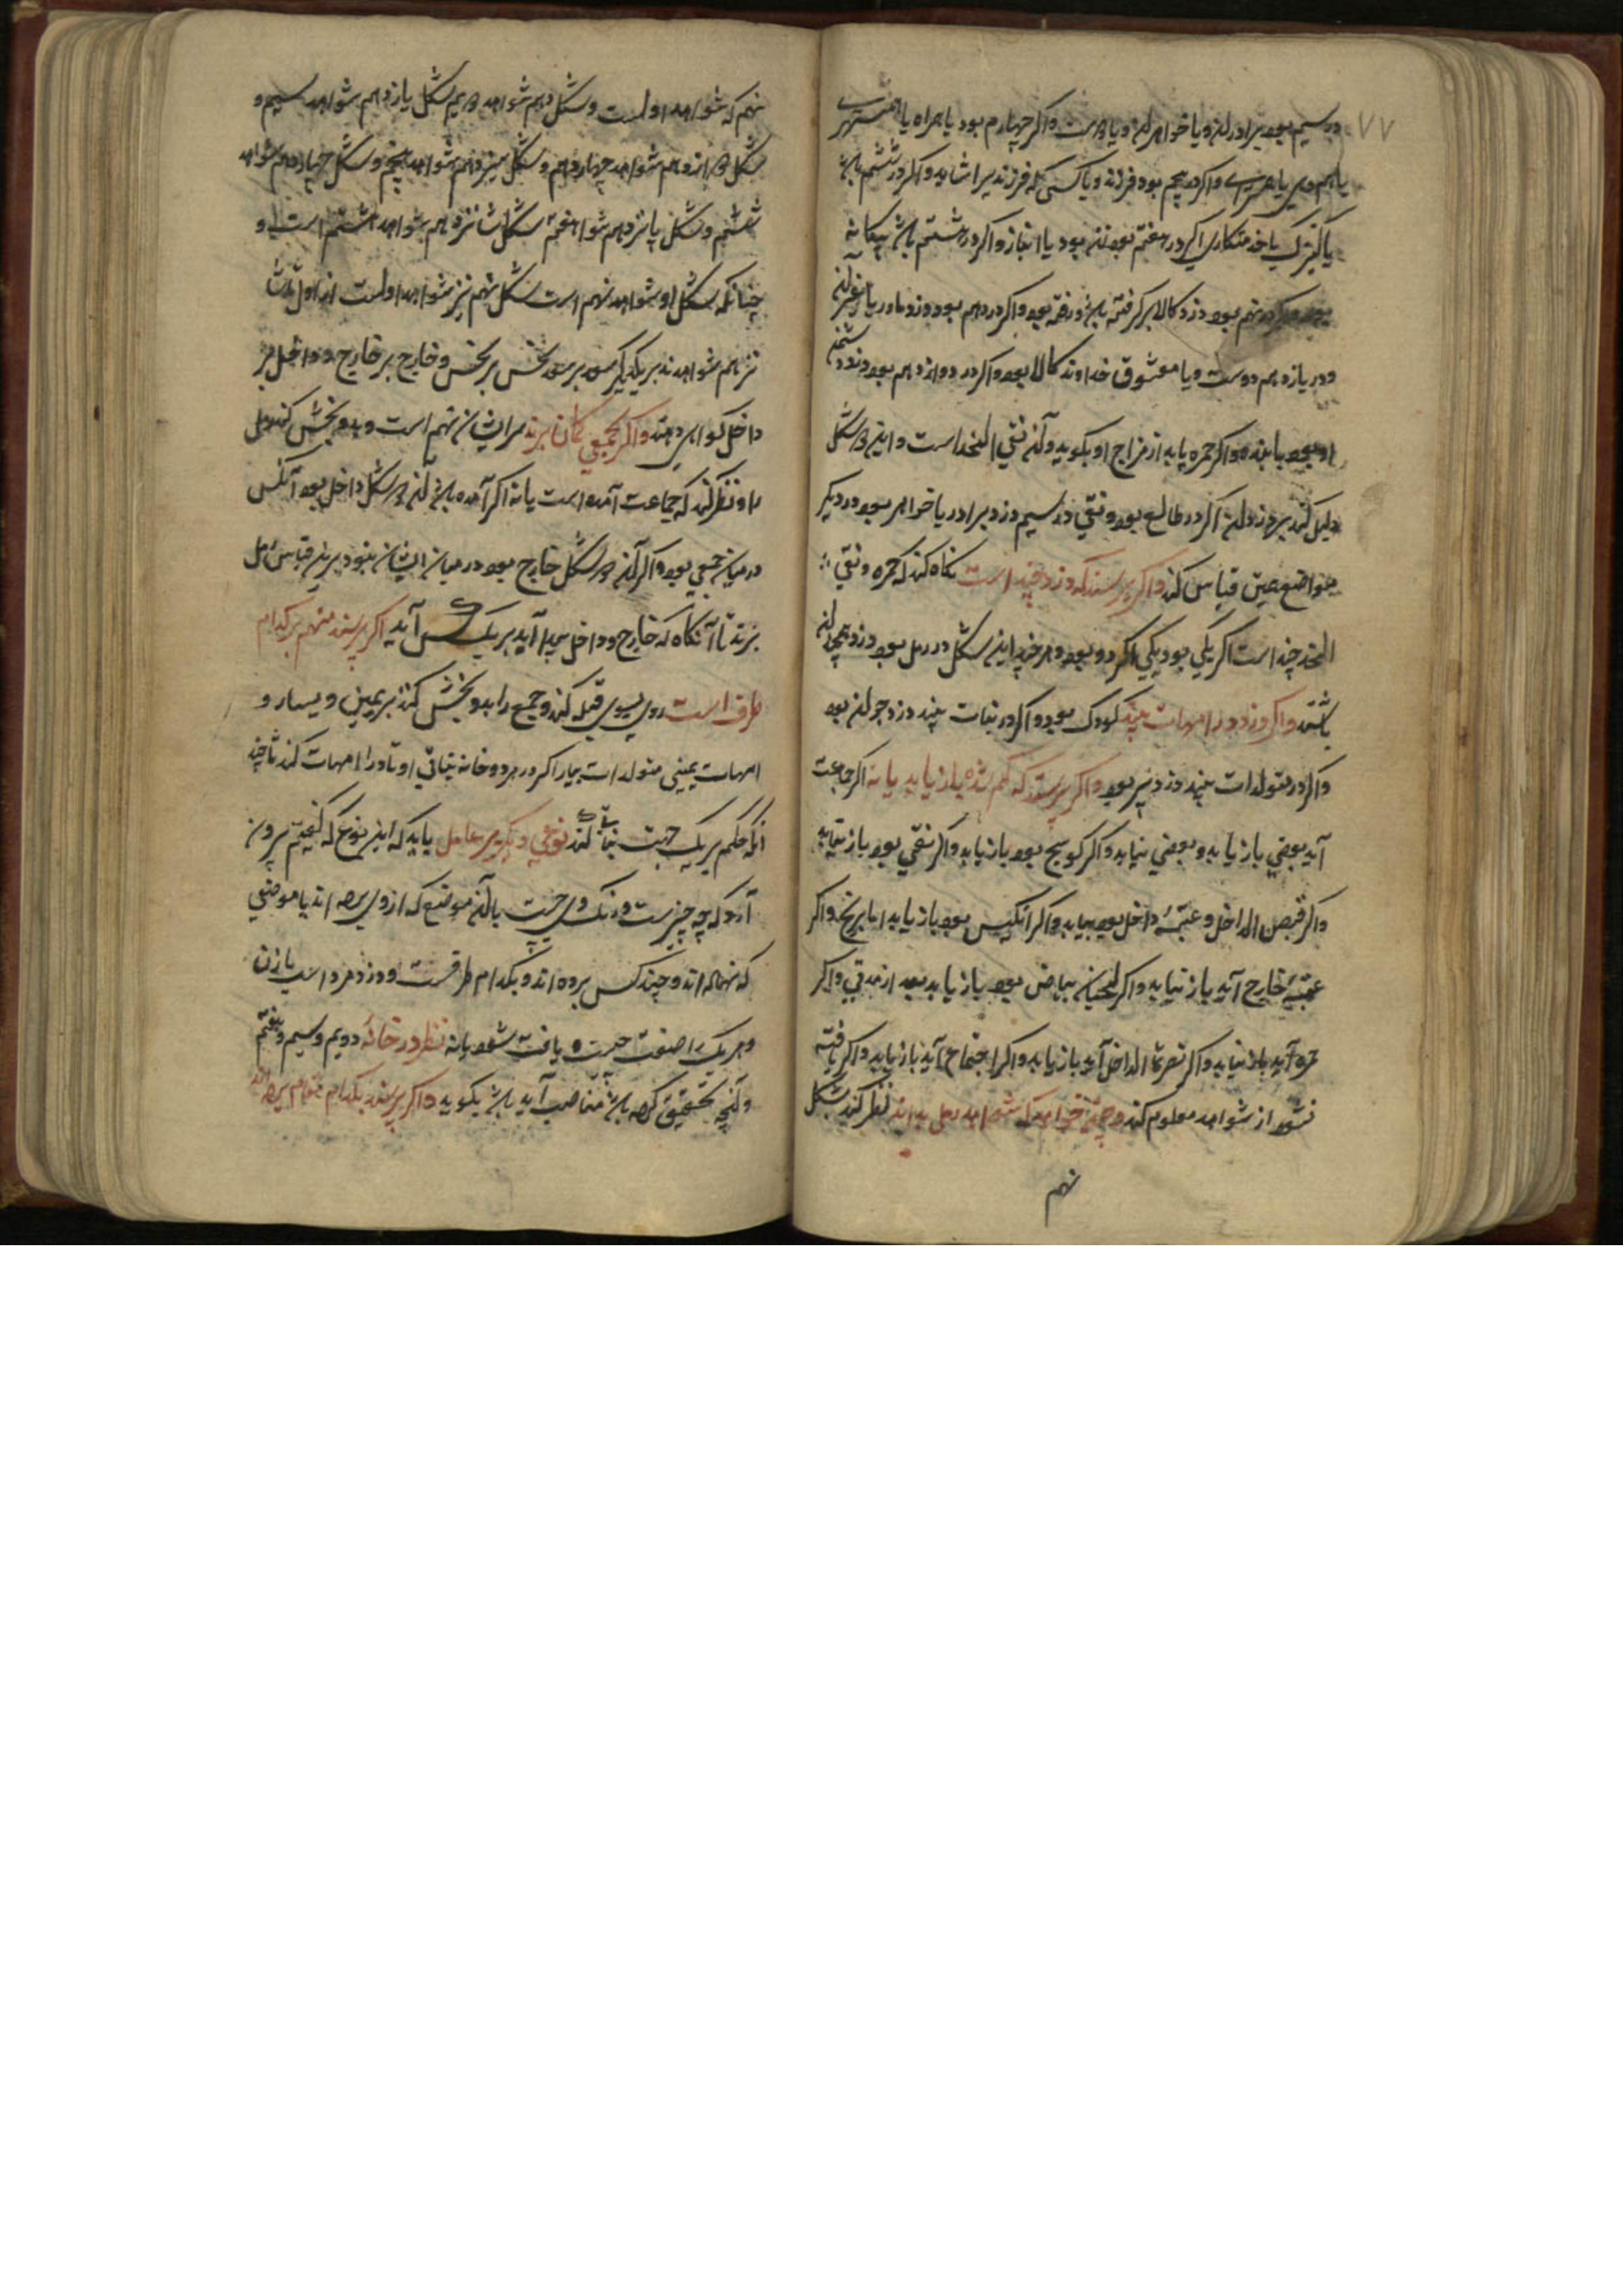 ۷۷
در سیم بود برادر کند و یا خواهر کند و یا و اکر چهارم بود یا همراه یا
یا و اکر در پنجم بود فرزند و یا کسی که فرزند یرا شاید و اکر در ششم باشد
یا کنیزک یا خدمتکاری اکر در هفتم بود زن بود یا انباز و اکر در هشتم باشد بیکانه
بود و اکر در نهم بود دزد کالا بر کرفته باشد و رفته بود و اکر در دهم بود دزد مادر یا
و در یازدهم دوست و یا معشوق خداوند کالا بود و اکر در دوازدهم بود دزد دشمن
او بود یا بنده و اکر حمره یابد از مزاج او بکوید و آنکه نقی الخد است و این هر شکل
دلیل کند بر دزد اکر در طالع بود و نقی در سیم دزد برادر یا خواهر بود در دیکر
مواضع همین قیاس کند و اکر پرسند که دزد چند است نکاه کند که حمره و نقی
الخد چند است اکر یکی بود یکی اکر دو بود و هر چند این شکل در رمل بود دزد همچندان
باشند و اکر دزد در امهات بیند کودک بود و اکر در بنات بیند دزد جوان بود
و اکر در متولدات بیند دزد پیر بود و اکر پرسند که کم شده باز یابد یا نه اکر جماعت
آید بعضی باز یابد و بعضی نیابد و اکر کوسج بود باز یابد و اکر نقی بود باز نیابد
و اکر قبض الداخل و عتبهٔ داخل بود بیابد و اکر انکیس بود باز یابد اما برنج و اکر
عتبهٔ خارج آید باز نیابد و اکر لحیان بیاض بود باز یابد بعد از مدتی و اکر
حمره آید باز نیابد و اکر نصرة الداخل آید باز یابد و اکر اجتماع آید باز یابد و اکر یافته
نشود از شواهد معلوم کند و چون خواهد که شواهد رمل بداند نظر کند بشکل
نهم
نهم که شواهد اولست و شکل دهم شواهد دویم شکل یازدهم شواهد سیم و
شکل دوازدهم شواهد چهاردهم و شکل سیزدهم شواهد پنجم و شکل چهاردهم شواهد
ششم و شکل پانزدهم شواهد هفتم شکل شانزدهم شواهد هشتم است و
چنانکه شکل او شواهد نهم است شکل نهم نیز شواهد اولست از اول تا
نیز هم شواهدند بر یکدیکر سعد بر سعد نحس بر نحس و خارج بر خارج و داخل بر
داخل کواهی دهند و اکر بجمعی کمان برند مر ایشان تهم است و بدو بخش کند رمل
را و نظر کند که جماعت آمده است یا نه اکر آمده باشد آنکه هر شکل داخل بود آنکس
در میان جمعی بود و اکر آنکه هر شکل خارج بود در میان ایشان نبود برین قیاس رمل
بزند تا آنکاه که خارج و داخل پیدا آید بر یک کس آید اکر پرسند متهم بر کدام
طرف است روی بسوی قبله کند و جمع را بدو بخش کند بر یمین و یسار و
امهات یمینی متولدات بیار اکر در هر دو خانه بنایی اوتاد را امهات کند تا چند
آنکه حکم بر یک جهت ثبات کند نوعی دیکر بر عامل باید که این نوع که کفتیم برون
آرد که چه چیز است و رنک وی چیست یا آنکه موضع که از وی برده اند یا موضعی
که نهاده اند و چند کس برده اند و بکدام طرفست و دزد مرد است یا زن
و هر یک را صفت چیست و یافت شود یا نه نظر در خانهٔ دویم و سیم و هفتم
و آنچه تحقیق کرده باشد مناصب آید باشد بکوید و اکر پرسند بکدام مقام برده اند